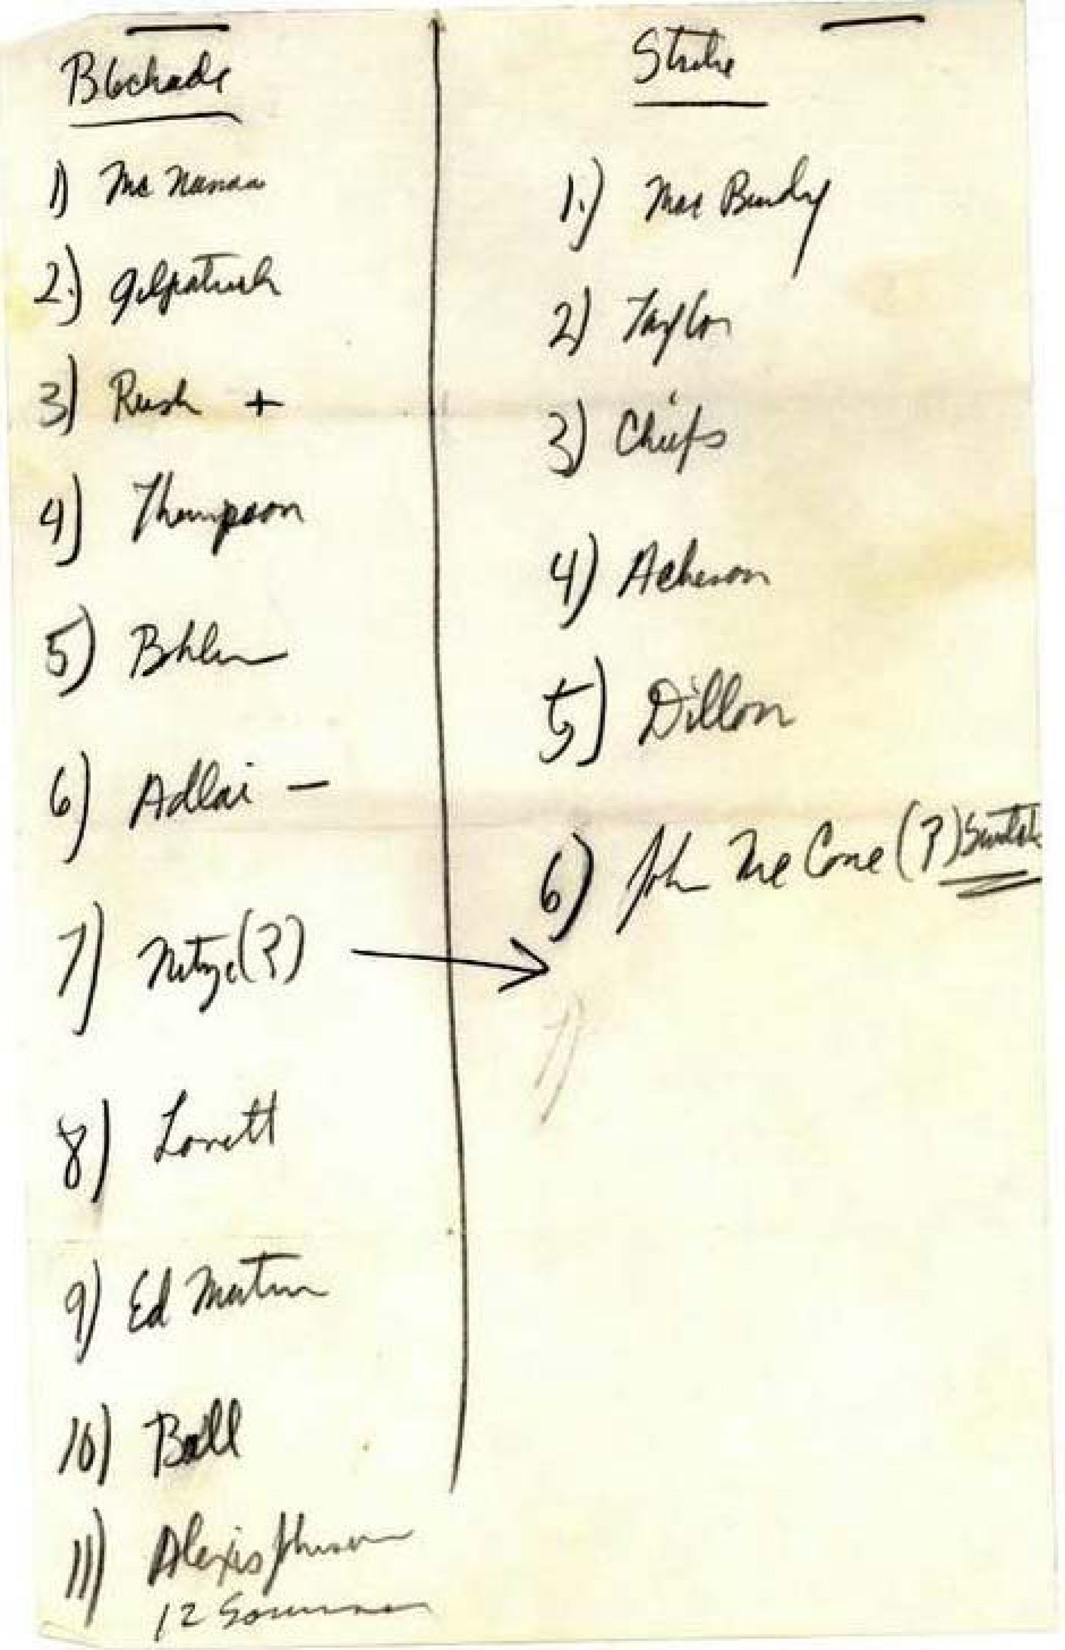 Blockade
1) McNamara
2.) Gilpatrick
3) Rusk +
4) Thompson
5) Bohlen
6) Adlai —
7) Nitze (?) →
8) Lovett
9) Ed Martin
10) Ball
11) Alexis Johnson
12 Sorensen
Strike
1.) Mac Bundy
2) Taylor
3) Chiefs
4) Acheson
5) Dillon
6) John McCone (?) Switch
7)